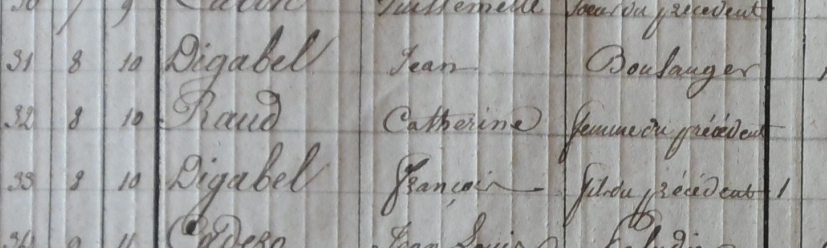 30 7 9 Guillemette Soeur du précédent
31 8 10 Digabel Jean Boulanger 1
32 8 10 Raud Catherine femme du précédent
33 8 10 Digabel françois fils du précédent 1
Jean Louis